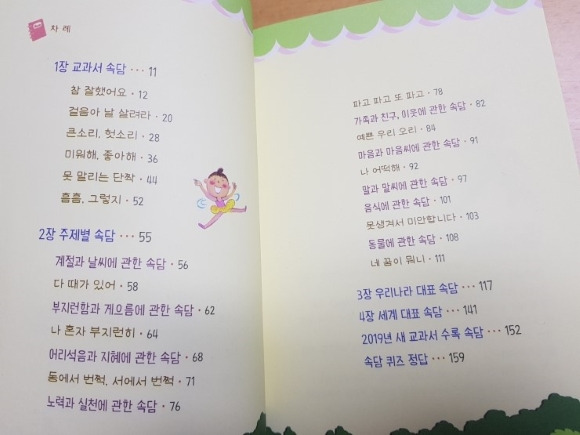 차례
1장 교과서 속담 ··· 11
참 잘했어요 · 12
걸음아 날 살려라 · 20
큰소리, 헛소리 · 28
미워해, 좋아해 · 36
못 말리는 단짝 · 44
흠흠, 그렇지 · 52
2장 주제별 속담 ··· 55
계절과 날씨에 관한 속담 · 56
다 때가 있어 · 58
부지런함과 게으름에 관한 속담 · 62
나 혼자 부지런히 · 64
어리석음과 지혜에 관한 속담 · 68
동에서 번쩍, 서에서 번쩍 · 71
노력과 실천에 관한 속담 · 76
파고 파고 또 파고 · 78
가족과 친구, 이웃에 관한 속담 · 82
예쁜 우리 오리 · 84
마음과 마음씨에 관한 속담 · 91
나 어떡해 · 92
말과 말씨에 관한 속담 · 97
음식에 관한 속담 · 101
못생겨서 미안합니다 · 103
동물에 관한 속담 · 108
네 꿈이 뭐니 · 111
3장 우리나라 대표 속담 ··· 117
4장 세계 대표 속담 ··· 141
2019년 새 교과서 수록 속담 ··· 152
속담 퀴즈 정답 ··· 159